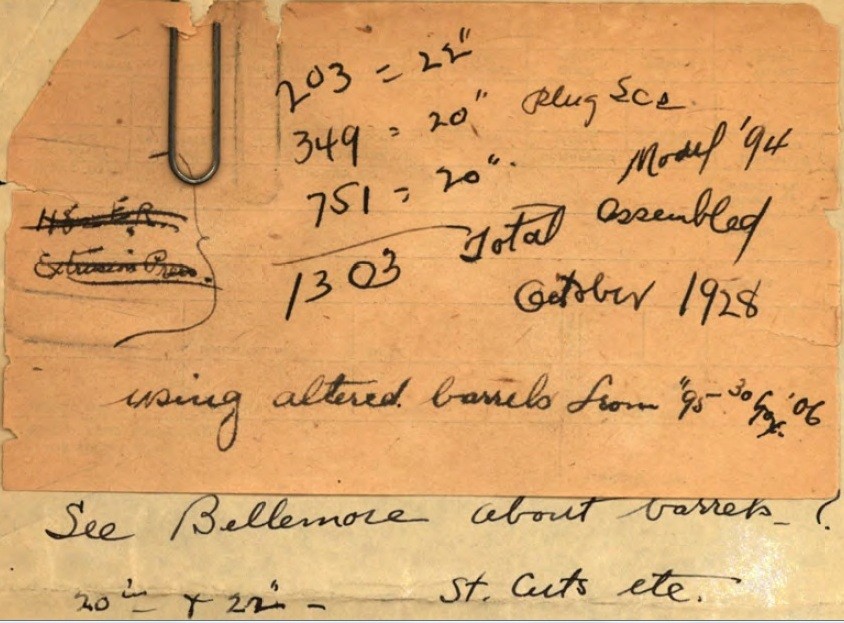 203 = 22"
349 = 20" plug Scs
751 = 20" Model '94
Total assembled
1303 October 1928
using altered barrels from "95 - 30 Gov. '06
See Bellemore about barrels - ?
20" - + 22" - St. Cuts etc.